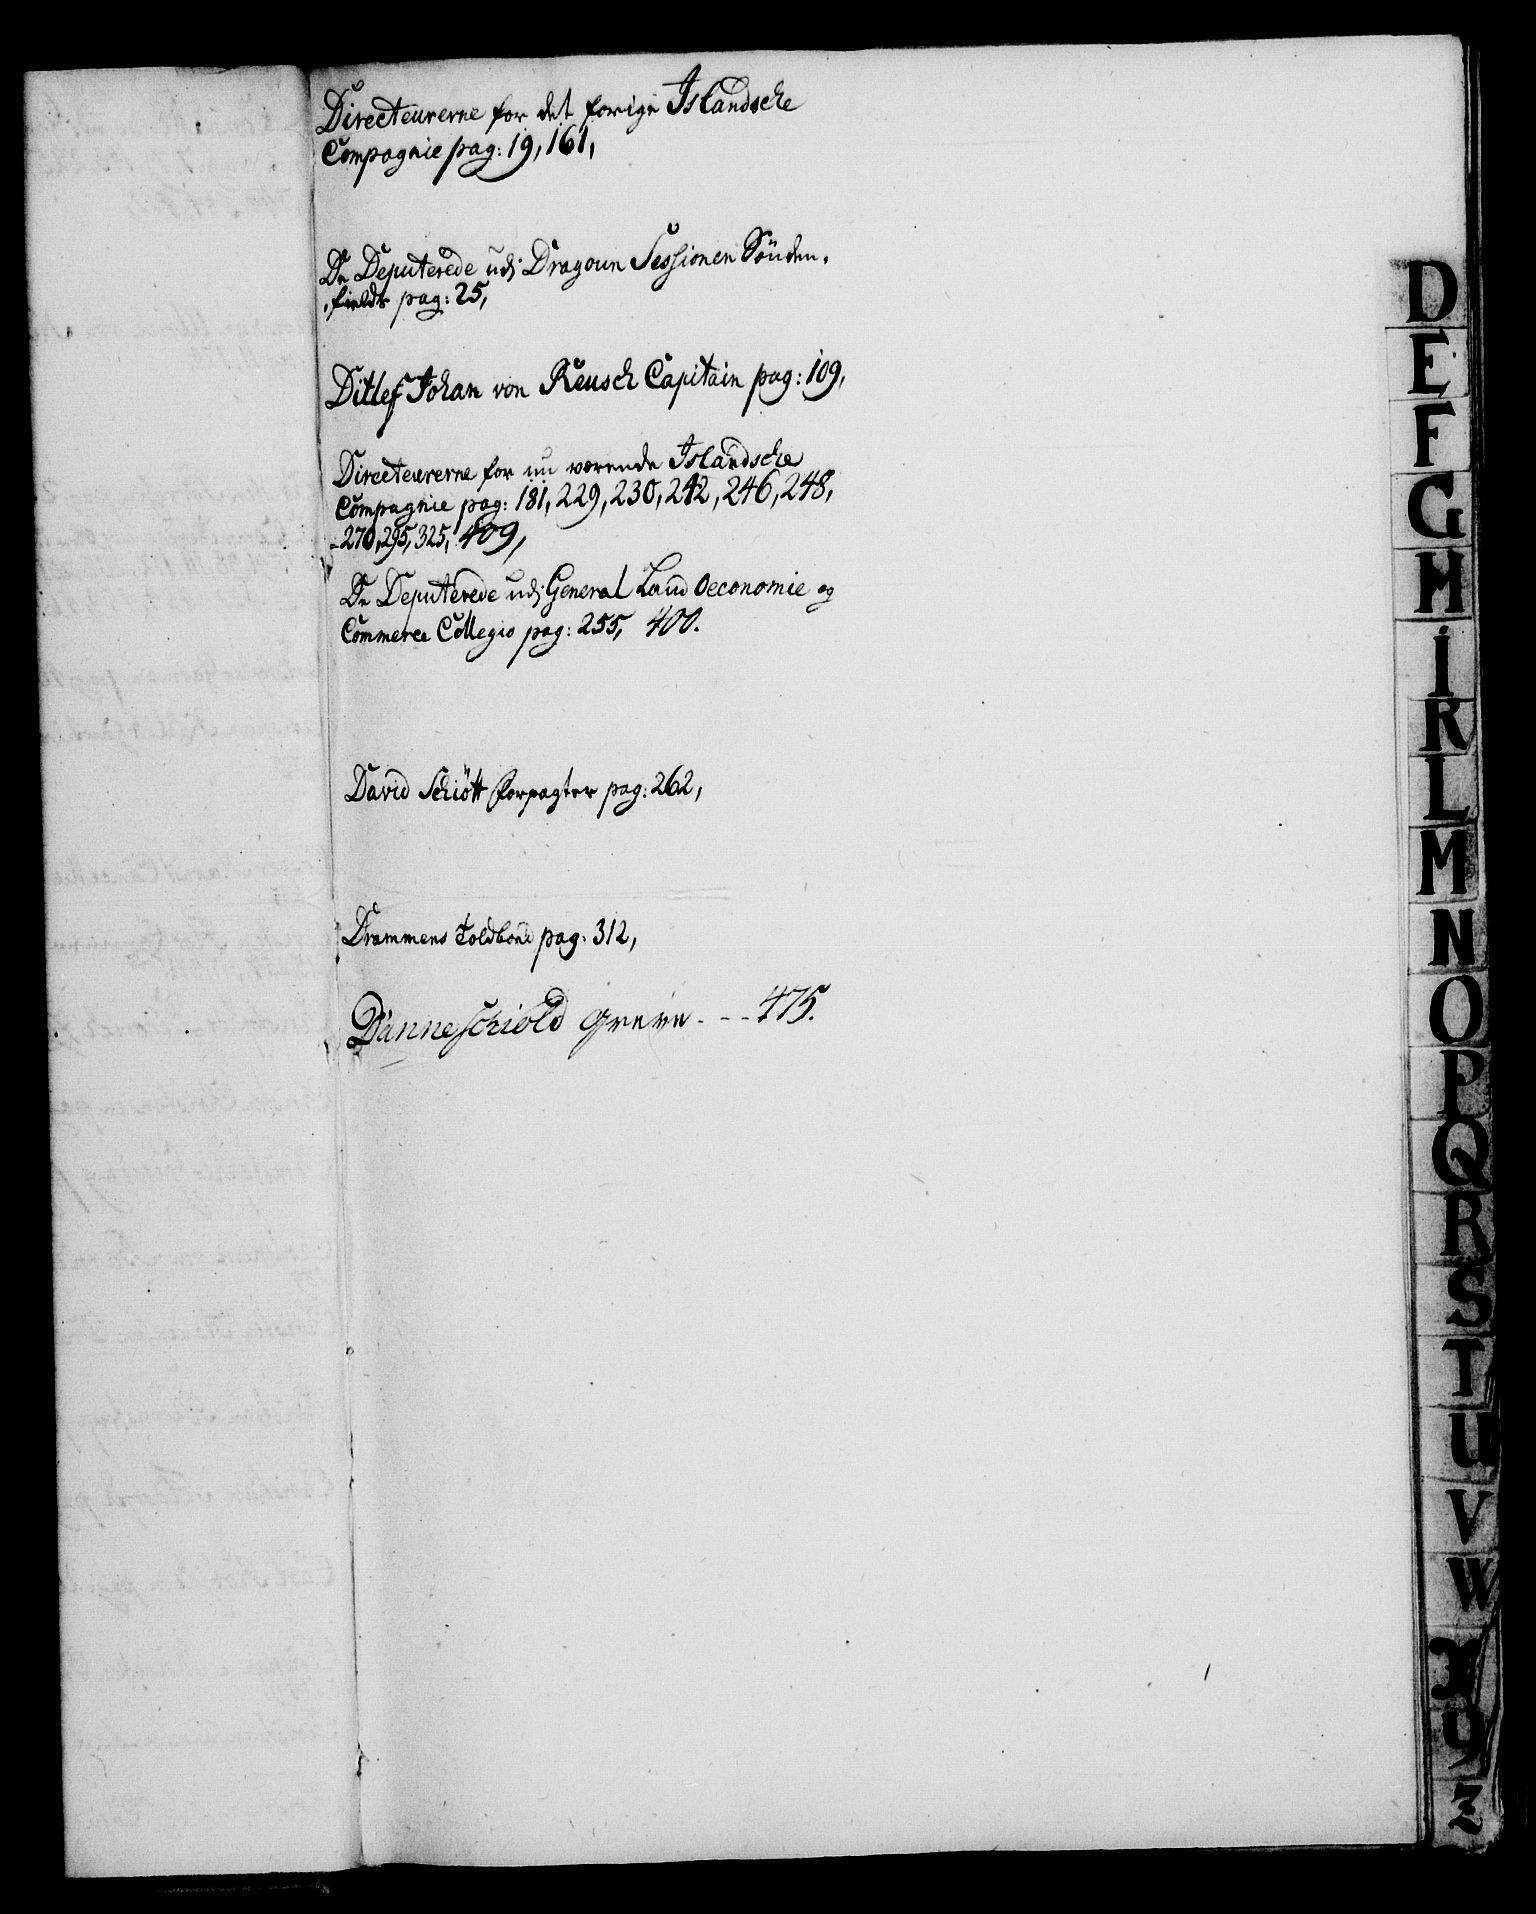 Directeurerne for det forige Islandsche
Compagnie pag: 19, 161,
De Deputerede udj Dragoun Sessionen Sönden-
fields pag: 25,
Ditlef Johan von Reusch Capitain pag: 109,
Directeurerne for nu værende Islandsche
Compagnie pag: 181, 229, 230, 242, 246, 248,
270, 295, 325, 409,
De Deputerede udj General Land Oeconomie og
Commerce Collegio pag: 255, 400.
David Schiött Forpagter pag: 262,
Drammens Toldbod pag: 312,
Danneschiold Greve - - - 475.
D
E
F
G
H
I
K
L
M
N
O
P
Q
R
S
T
U
V
W
X
Y
Z